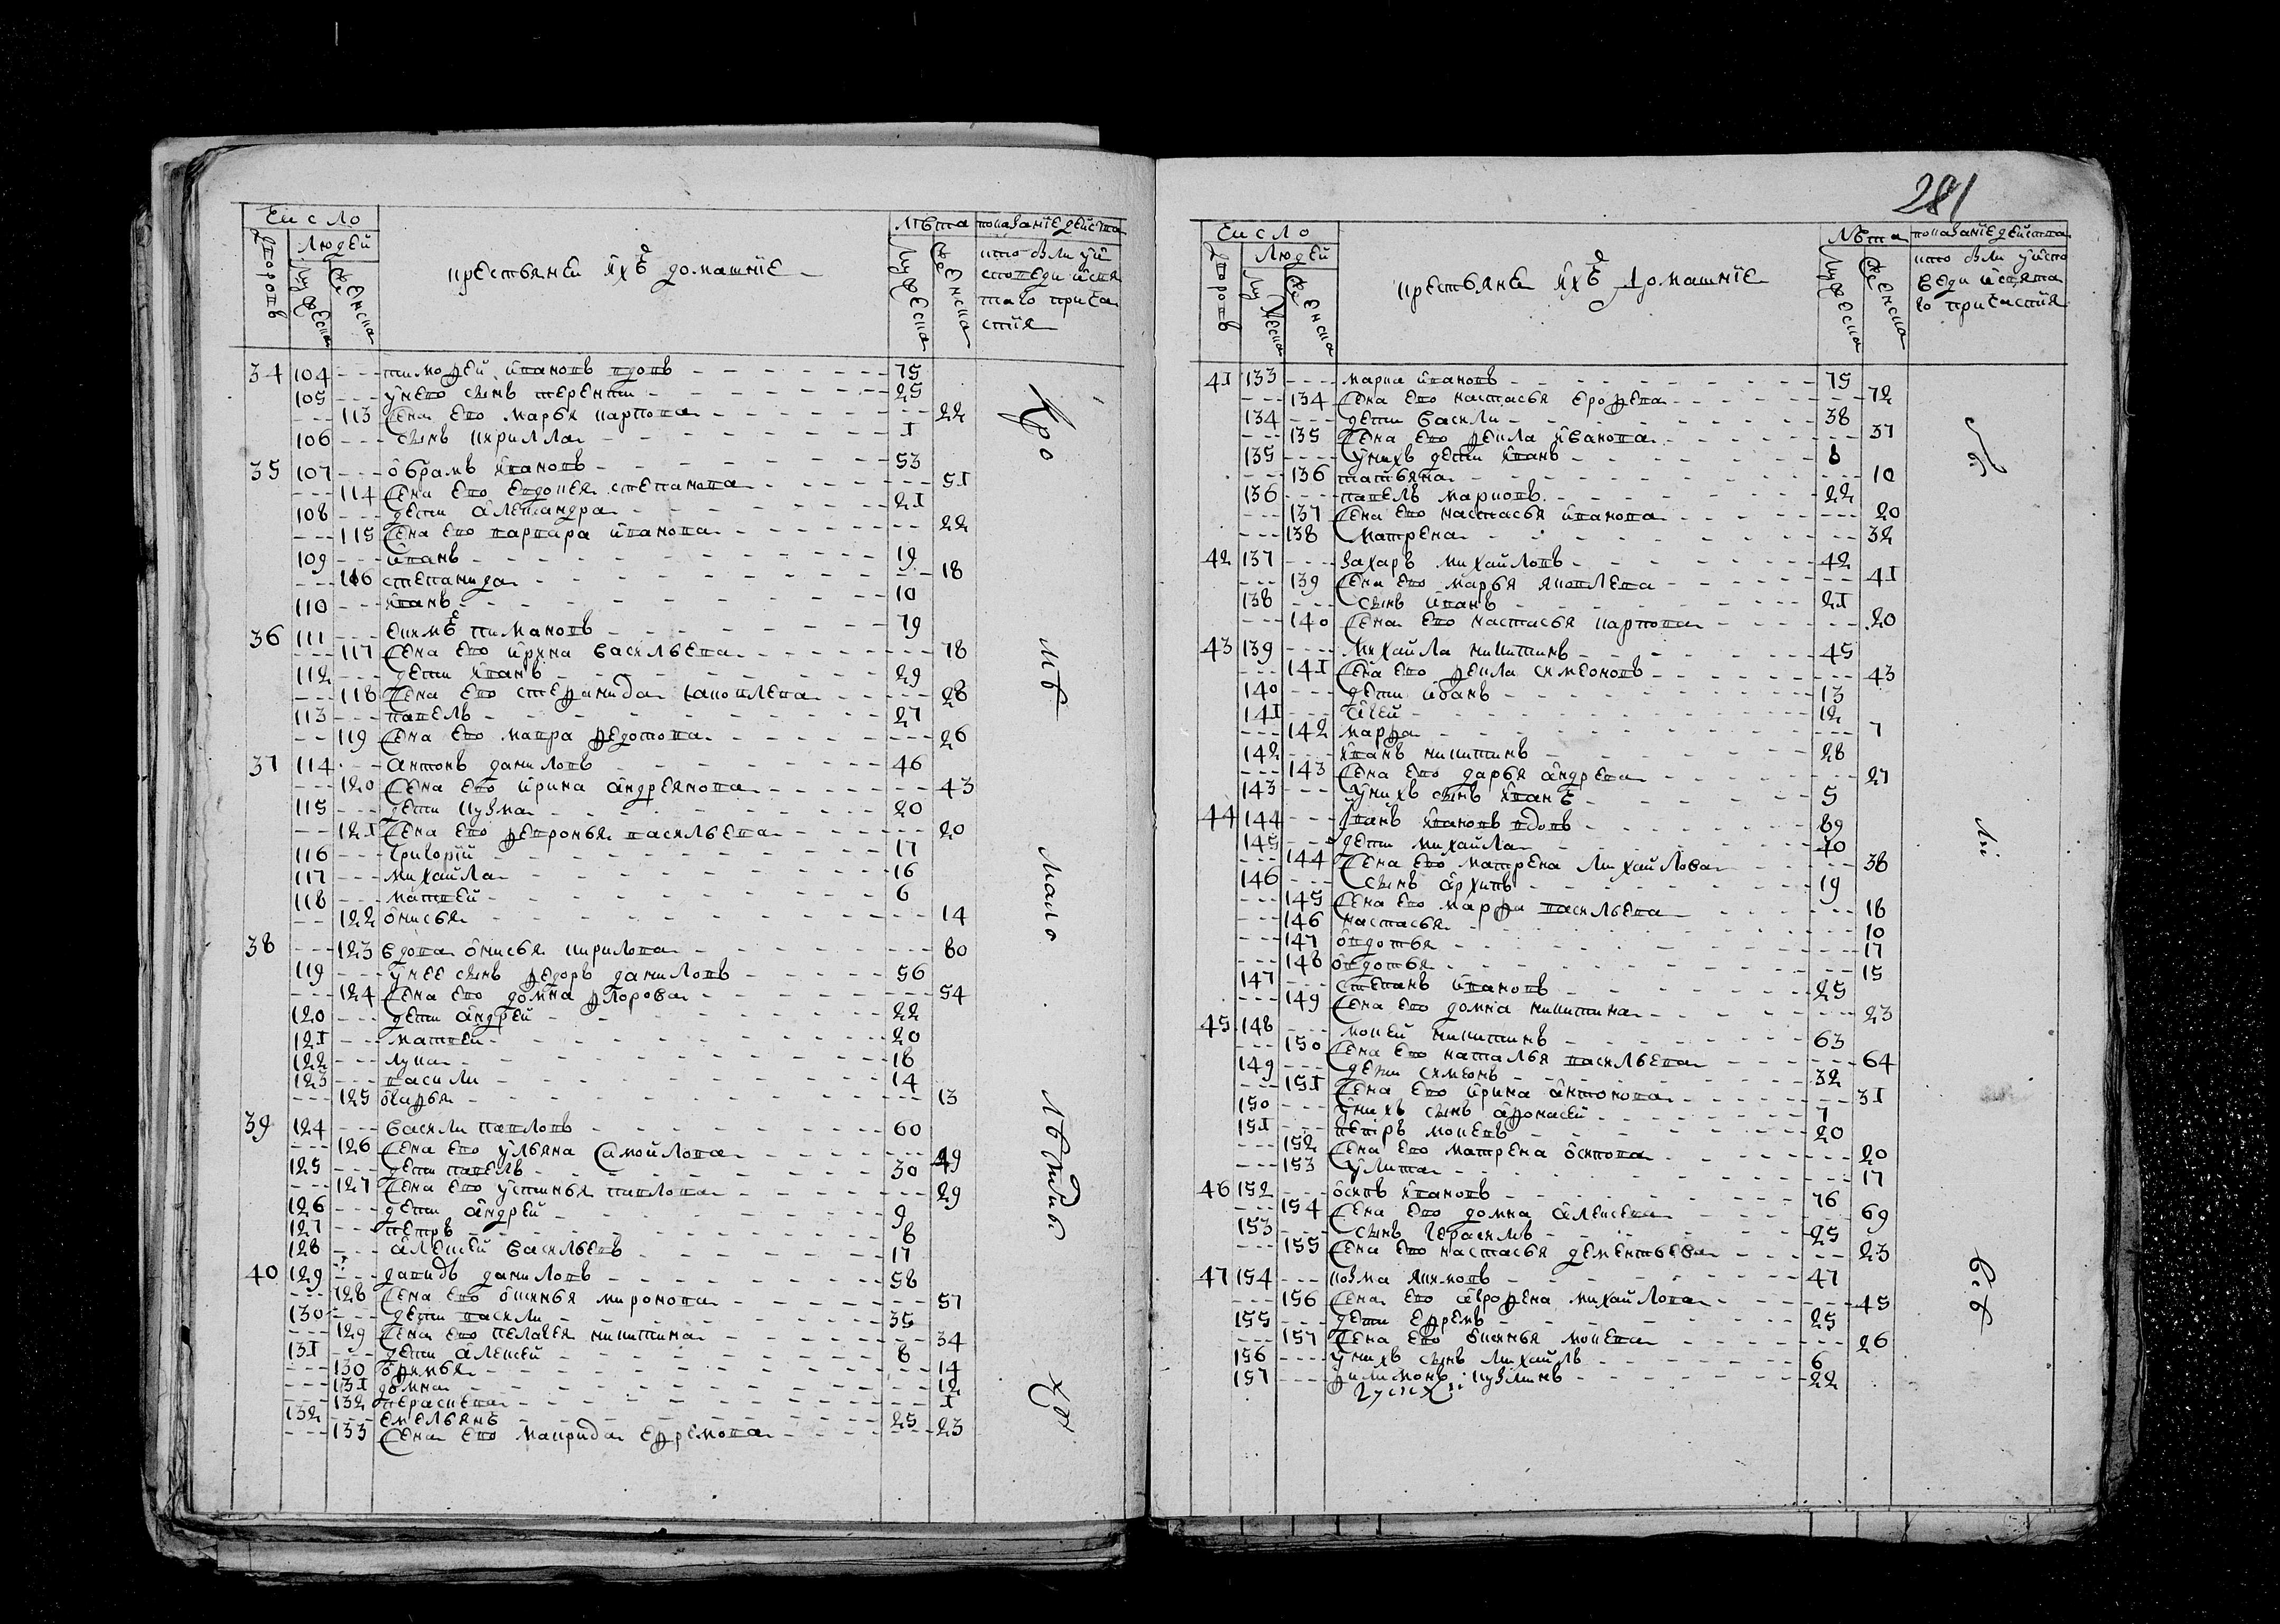 Число
Людей
дворовъ
мужеска
женска
крестьяне и ихъ домашние
Лѣта
мужеска
женска
показание действа
кто были у ис
поведи и свя
таго прича
стия
34 104 --- тимофей иванов вдовъ 75
105 --- у него сынъ терентии 25
--- 113 жена его марья карпова 22
106 --- сынъ кирилла 1
35 107 --- обрамъ иванов 53
--- 114 жена его евдокея степанова 51
108 --- дети александра 21
--- 115 жена его варвара иванова 22
109 --- иванъ 19
--- 116 степанида 18
110 --- иванъ 10
36 111 --- екимъ пимановъ 79
--- 117 жена его ирина васильева 78
112 --- дети иванъ 29
--- 118 жена его стефанида яковлева 28
113 --- павелъ 27
--- 119 жена его мавра федотова 26
37 114 --- антонъ даниловъ 46
--- 120 жена его ирина андреянова 43
115 --- дети кузма 20
--- 121 жена его февронья васильева 20
116 --- григорий 17
117 --- михайла 16
118 --- матвей 6
--- 122 онисья 14
38 --- 123 вдова онисья кирилова 80
119 --- у нее сынъ федоръ даниловъ 56
--- 124 жена его домна флорова 54
120 --- дети андрей 22
121 --- матвей 20
122 --- лука 18
123 --- васили 14
--- 125 офья 13
39 124 --- васили павловъ 60
--- 126 жена его ульяна самойлова 49
125 --- дети павелъ 30
--- 127 жена его устинья павлова 29
126 --- дети андрей 9
127 --- петръ 8
128 --- алексей васильевъ 17
40 129 --- давидъ даниловъ 58
--- 128 жена его аксинья миронова 57
130 --- дети васили 35
--- 129 жена его пелагея никитина 34
131 --- дети алексей 8
--- 130 офимья 14
--- 131 домна 12
--- 132 парасковья 1
132 --- емельянъ 25
--- 133 жена его маврида ефремова 23
Кро
мѣ
мало
лѣтныхъ
281
Число
Людей
дворовъ
мужеска
женска
крестьяне и ихъ домашние
Лѣта
мужеска
женска
показание действа
кто были у испо
веди и свята
го причастия
41 133 --- марка ивановъ 75
--- 134 жена его настасья ерофева 72
134 --- дети васили 38
--- 135 жена его фекла иванова 37
135 --- у нихъ дети иванъ 8
--- 136 татьяна 10
136 --- павелъ марковъ 22
--- 137 жена его настасья иванова 20
--- 138 матрена 32
42 137 --- захаръ михайловъ 42
--- 139 жена его марья яковлева 41
138 --- сынъ иванъ 21
--- 140 жена его настасья карпова 20
43 139 --- михайла никитинъ 45
--- 141 жена его фекла симеоновъ 43
140 --- дети иванъ 13
141 --- агей 12
--- 142 марфа 7
142 --- иванъ никитинъ 28
--- 143 жена его дарья андрева 27
143 --- у нихъ сынъ иванъ 5
44 144 --- иванъ ивановъ вдовъ 89
145 --- дети михайла 40
--- 144 жена его матрена михайлова 38
146 --- сынъ архипъ 19
--- 145 жена его марфа васильева 18
--- 146 настасья 10
--- 147 овдотья 17
--- 148 овдотья 15
147 --- степанъ ивановъ 25
--- 149 жена его домна никитина 23
45 148 --- мокей никитинъ 63
--- 150 жена его наталья васильева 64
149 --- дети симеонъ 32
--- 151 жена его ирина антонова 31
150 --- у нихъ сынъ афонасей 7
151 --- петръ мокевъ 20
--- 152 жена его матрена осипова 20
--- 153 улита 17
46 152 --- осипъ ивановъ 76
--- 154 жена его домна алексева 69
153 --- сынъ герасимъ 25
--- 155 жена его настасья дементьева 23
47 154 --- козма якимовъ 47
--- 156 жена его аграфена михайлова 45
155 --- дети ефремъ 25
--- 157 жена его аксинья мокева 26
156 --- у нихъ сынъ михайлъ 6
157 --- филимонъ кузминъ 22